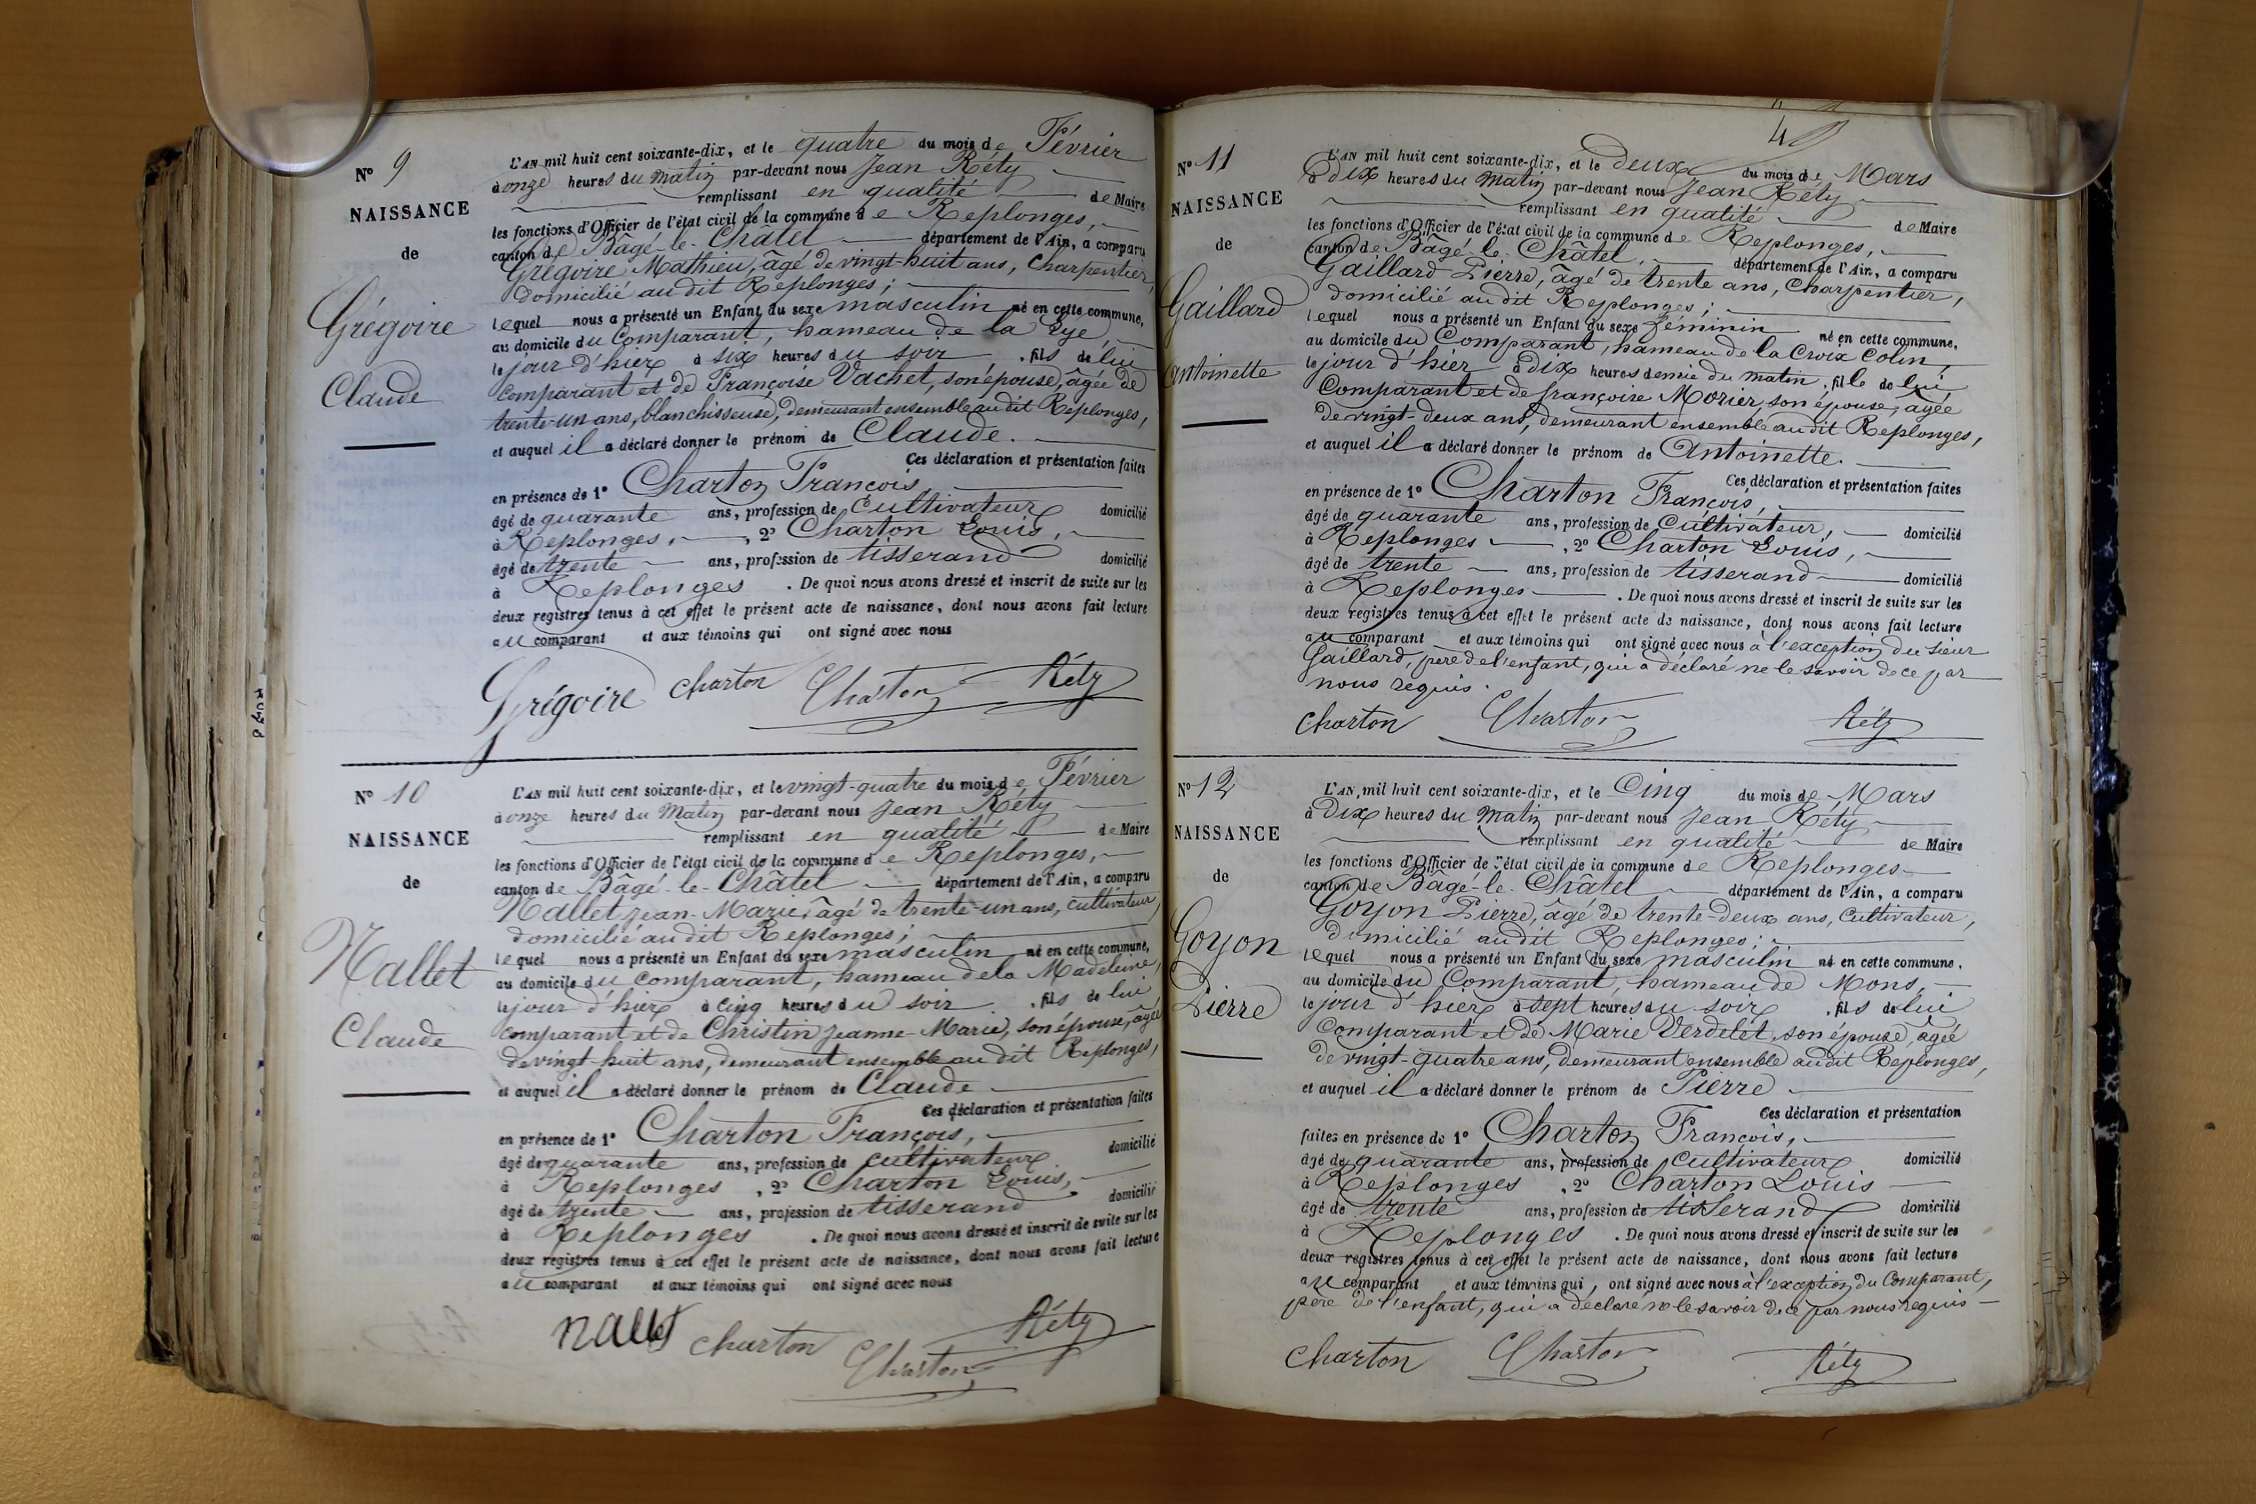 N° 9
NAISSANCE
de
Grégoire
Claude
L'AN mil huit cent soixante-dix, et le quatre du mois de Février
à onze heures du Matin par-devant nous Jean Réty
remplissant en qualité de Maire
les fonctions d'Officier de l'état civil de la commune de Replonges,
canton de Bâgé-le-Châtel département de l'Ain, a comparu
Grégoire Mathieu, âgé de vingt-huit ans, Charpentier,
domicilié au dit Replonges;
lequel nous a présenté un Enfant du sexe masculin né en cette commune,
au domicile du Comparant, hameau de la
le jour d'hier à six heures du soir, fils de lui
comparant et de Françoise Vachet, son épouse, âgée de
trente-un ans, blanchisseuse, demeurant ensemble au dit Replonges,
et auquel il a déclaré donner le prénom de Claude.
Ces déclaration et présentation faites
en présence de 1° Charton François,
âgé de quarante ans, profession de Cultivateur domicilié
à Replonges, , 2° Charton Louis,
âgé de trente ans, profession de tisserand domicilié
à Replonges . De quoi nous avons dressé et inscrit de suite sur les
deux registres tenus à cet effet le présent acte de naissance, dont nous avons fait lecture
au comparant et aux témoins qui ont signé avec nous
Grégoire Charton Charton Réty
N° 10
NAISSANCE
de
Nallet
Claude
L'AN mil huit cent soixante-dix, et le vingt-quatre du mois de Février
à onze heures du Matin par-devant nous Jean Réty
remplissant en qualité de Maire
les fonctions d'Officier de l'état civil de la commune de Replonges,
canton de Bâgé-le-Châtel département de l'Ain, a comparu
Nallet Jean-Marie, âgé de trente-un ans, cultivateur,
domicilié au dit Replonges;
lequel nous a présenté un Enfant du sexe masculin né en cette commune,
au domicile du comparant, hameau de la Madeleine,
le jour d'hier à Cinq heures du soir , fils de lui
comparant et de Christin Jeanne Marie, son épouse, âgée
de vingt-huit ans, demeurant ensemble au dit Replonges,
et auquel il a déclaré donner le prénom de Claude
Ces déclaration et présentation faites
en présence de 1° Charton François,
âgé de quarante ans, profession de cultivateur domicilié
à Replonges , 2° Charton Louis,
âgé de trente ans, profession de tisserand domicilié
à Replonges . De quoi nous avons dressé et inscrit de suite sur les
deux registres tenus à cet effet le présent acte de naissance, dont nous avons fait lecture
au comparant et aux témoins qui ont signé avec nous
nallet charton Charton Réty
N° 11
NAISSANCE
de
Gaillard
Antoinette
L'AN mil huit cent soixante-dix, et le deux du mois de Mars
à dix heures du Matin par-devant nous Jean Réty
remplissant en qualité de Maire
les fonctions d'Officier de l'état civil de la commune de Replonges,
canton de Bâgé-le-Châtel, département de l'Ain, a comparu
Gaillard Pierre, âgé de trente ans, Charpentier,
domicilié au dit Replonges;
lequel nous a présenté un Enfant du sexe féminin né en cette commune,
au domicile du Comparant, hameau de la Croix Colin,
le jour d'hier à dix heures demie du matin, fille de lui
Comparant et de françoise Morier, son épouse, âgée
de vingt-deux ans, demeurant ensemble au dit Replonges,
et auquel il a déclaré donner le prénom de Antoinette.
Ces déclaration et présentation faites
en présence de 1° Charton François,
âgé de quarante ans, profession de Cultivateur, domicilié
à Replonges , 2° Charton Louis,
âgé de trente ans, profession de tisserand domicilié
à Replonges . De quoi nous avons dressé et inscrit de suite sur les
deux registres tenus à cet effet le présent acte de naissance, dont nous avons fait lecture
au comparant et aux témoins qui ont signé avec nous à l'exception du sieur
Gaillard, père de l'enfant, qui a déclaré ne le savoir de ce par
nous requis.
Charton Charton Réty
N° 12
NAISSANCE
de
Goyon
Pierre
L'AN mil huit cent soixante-dix, et le Cinq du mois de Mars
à dix heures du Matin par-devant nous Jean Réty
remplissant en qualité de Maire
les fonctions d'Officier de l'état civil de la commune de Replonges
canton de Bâgé-le-Châtel département de l'Ain, a comparu
Goyon Pierre, âgé de trente-deux ans, Cultivateur,
domicilié au dit Replonges;
lequel nous a présenté un Enfant du sexe masculin né en cette commune,
au domicile du Comparant, hameau de Mons,
le jour d'hier à sept heures du soir , fils de lui
Comparant et de Marie Verdelet, son épouse, âgée
de vingt-quatre ans, demeurant ensemble au dit Replonges,
et auquel il a déclaré donner le prénom de Pierre
Ces déclaration et présentation
faites en présence de 1° Charton François,
âgé de quarante ans, profession de Cultivateur domicilié
à Replonges , 2° Charton Louis
âgé de trente ans, profession de tisserand domicilié
à Replonges . De quoi nous avons dressé et inscrit de suite sur les
deux registres tenus à cet effet le présent acte de naissance, dont nous avons fait lecture
au comparant et aux témoins qui, ont signé avec nous à l'exception du Comparant,
père de l'enfant, qui a déclaré ne le savoir de ce par nous requis
Charton Charton Réty